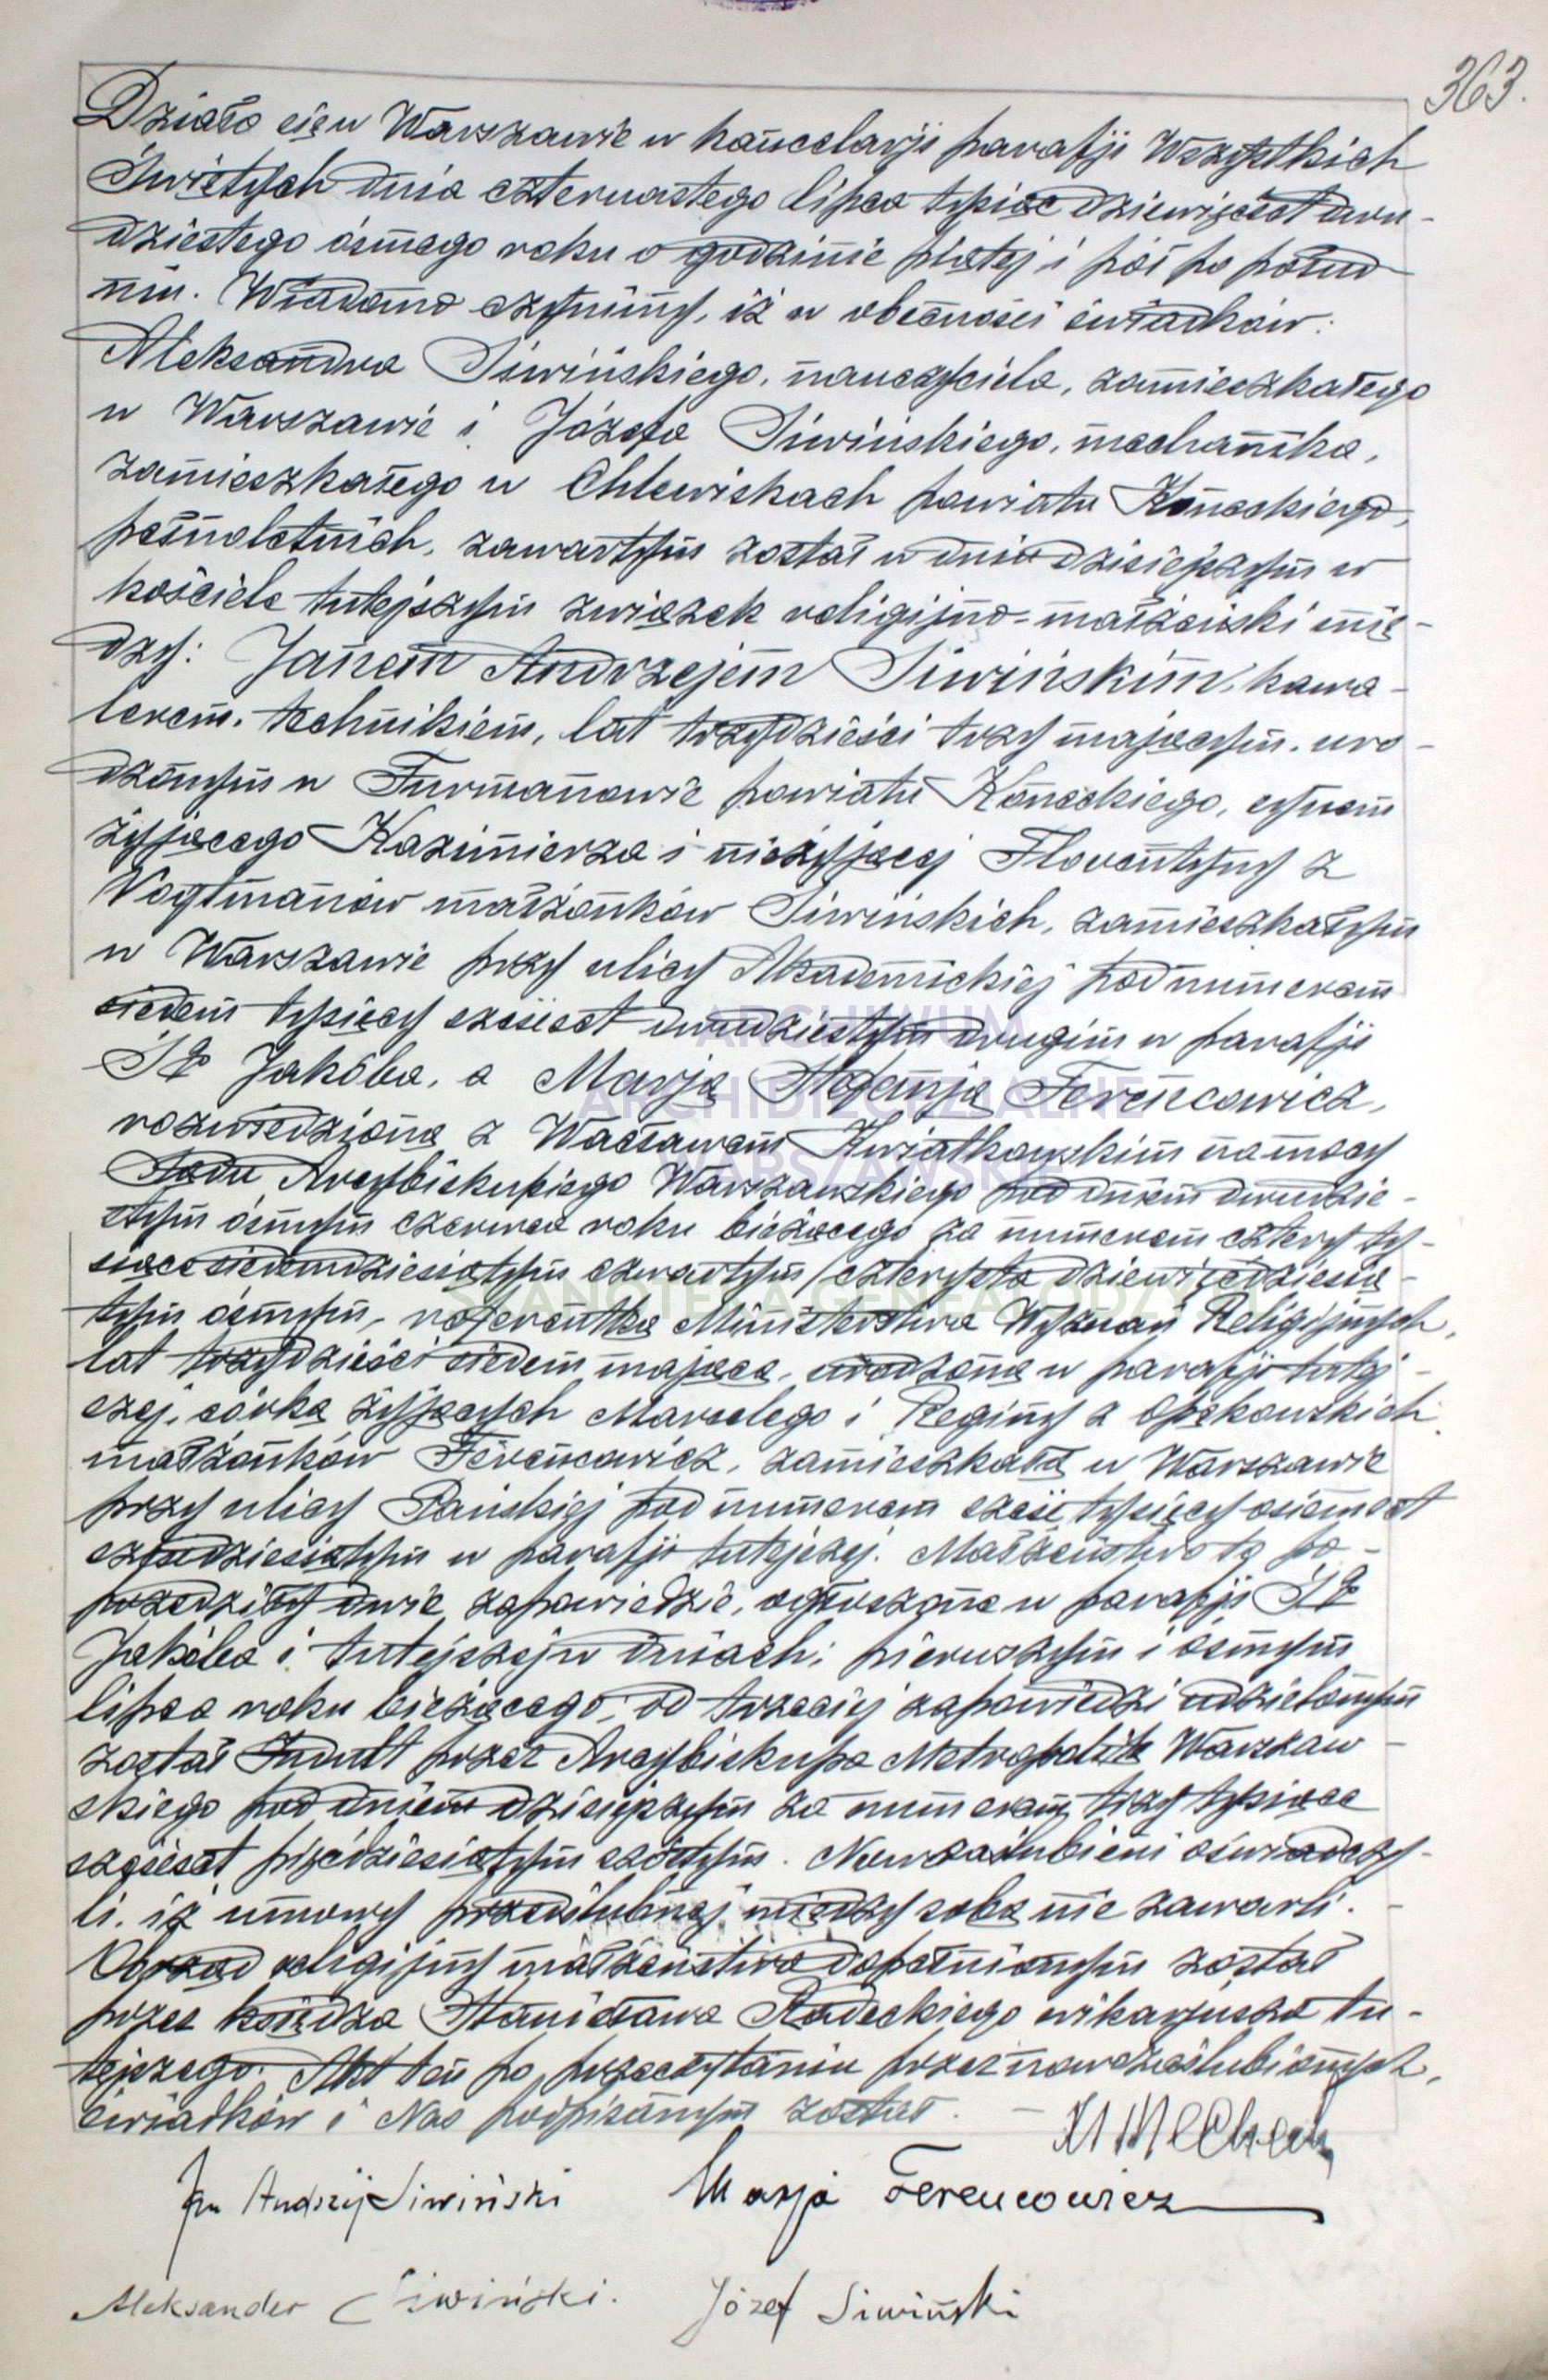 363.
Działo się w Warszawie w kancelarji parafji Wszystkich
Świętych dnia czternastego lipca tysiąc dziewięćset dwu-
dziestego ósmego roku o godzinie piątej i pół po połud
niu. Wiadomo czynimy, iż w obecności świadków:
Aleksandra Siwińskiego, nauczyciela, zamieszkałego
w Warszawie i Józefa Siwińskiego, mechanika,
zamieszkałego w Chlewiskach powiatu Koneckiego,
pełnoletnich, zawartym został w dniu dzisiejszym w
kościele tutejszym związek religijno-małżeński mię-
dzy: Janem Andrzejem Siwińskim, kawa-
lerem, technikiem, lat trzydzieści trzy mającym, uro-
dzonym w Furmanowie powiatu Koneckiego, synem
żyjącego Kazimierza i nieżyjącej Florentyny z
Vogtmanów małżonków Siwińskich, zamieszkałym
w Warszawie przy ulicy Akademickiej pod numerem
siedem tysięcy sześćset dwudziestym drugim w parafji
Śgo Jakóba, a Marją Stefanją Ferencowicz,
rozwiedzioną z Wacławem Kwiatkowskim na mocy
Sądu Arcybiskupiego Warszawskiego pod dniem dwudzie-
stym ósmym czerwca roku bieżącego za numerem cztery ty-
siące siedemdziesiątym czwartym / czterysta dziewięćdziesią-
tym ósmym, referentką Ministerstwa Wyznań Religijnych,
lat trzydzieści siedem mającą, urodzoną w parafji tutej-
szej, córką żyjących Marcelego i Reginy z Opękowskich
małżonków Ferencowicz, zamieszkałą w Warszawie
przy ulicy Pańskiej pod numerem sześć tysięcy osiemset
w parafji tutejszej. Małżeństwo to po-
przedziły dwie zapowiedzie, ogłoszone w parafji Śgo
Jakóba i tutejszej w dniach: pierwszym i ósmym
lipca roku bieżącego; od trzeciej zapowiedzi udzielonym
został Indult przez Arcybiskupa Metropolitę Warszaw-
skiego pod dniem dzisiejszym za numerem trzy tysiące
sześćset pięćdziesiątym szóstym. Nowozaślubieni oświadczy-
li, iż umowy przedślubnej między sobą nie zawarli. -
Obrząd religijny małżeństwa dopełnionym został
przez księdza Stanisława Radeckiego wikarjusza tu-
tejszego. Akt ten po przeczytaniu przez nowozaślubionych,
świadków i Nas podpisanym został. -
Jan Andrzej Siwiński Marja Ferencowicz
Aleksander Siwiński. Józef Siwiński
ARCHIWUM
ARCHIDIECEZJALNE
WARSZAWSKIE